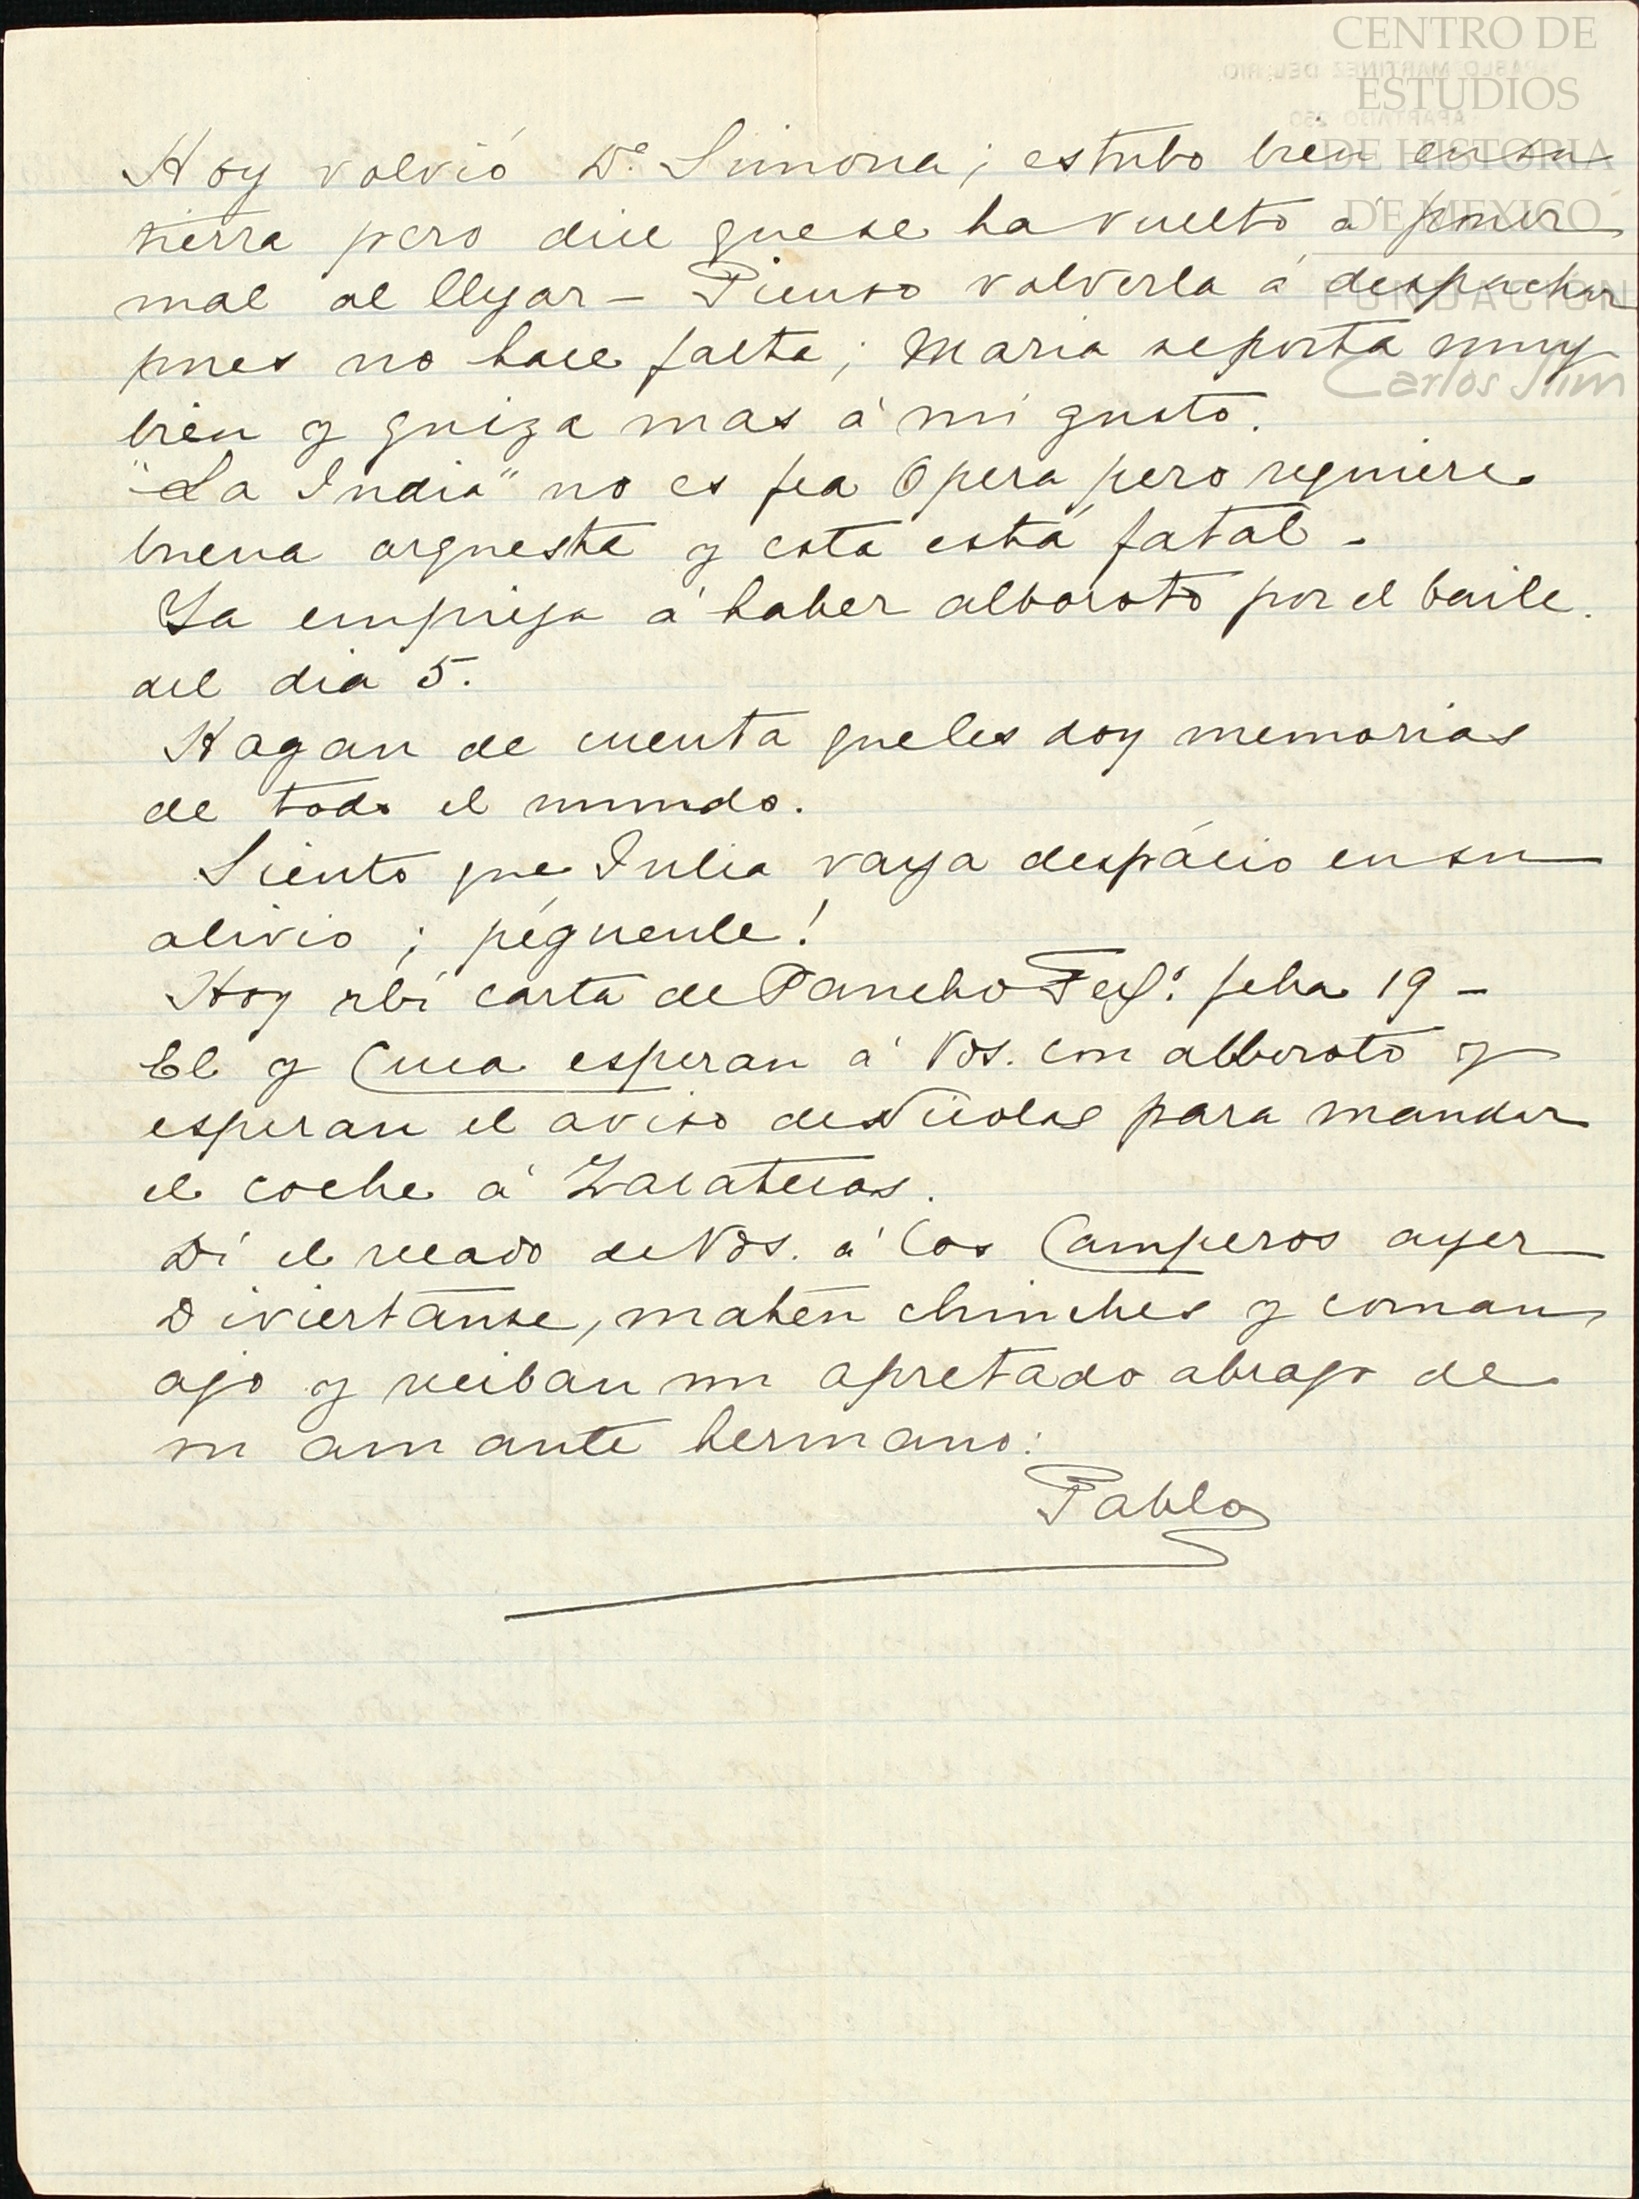 CENTRO DE
ESTUDIOS
DE HISTORIA
DE MEXICO
FUNDACION
Carlos Slim
PABLO MARTINEZ DEL RIO
APARTADO 250
Hoy volvió Dª Simona; estubo bien en su
tierra pero dice que se ha vuelto á poner
mal al llegar – Pienso volverla á despachar
pues no hace falta; Maria se porta muy
bien y guiza mas á mi gusto.
"La India" no es fea Opera pero requiere
buena orquesta y esta está fatal –
Ya empieza á haber alboroto por el baile
del dia 5.
Hagan de cuenta que les doy memorias
de todo el mundo.
Siento que Julia vaya despácio en su
alivio ; péguenle!
Hoy rbí carta de Pancho fcha 19 –
El y Cuca esperan á Vds. con alboroto y
esperan el aviso de Nicolas para mandar
el coche á Zacatecas.
Dí el recado de Vds. á los Camperos ayer
Diviertanse, maten chinches y coman
ajo y reciban un apretado abrazo de
su amante hermano:
Pablo